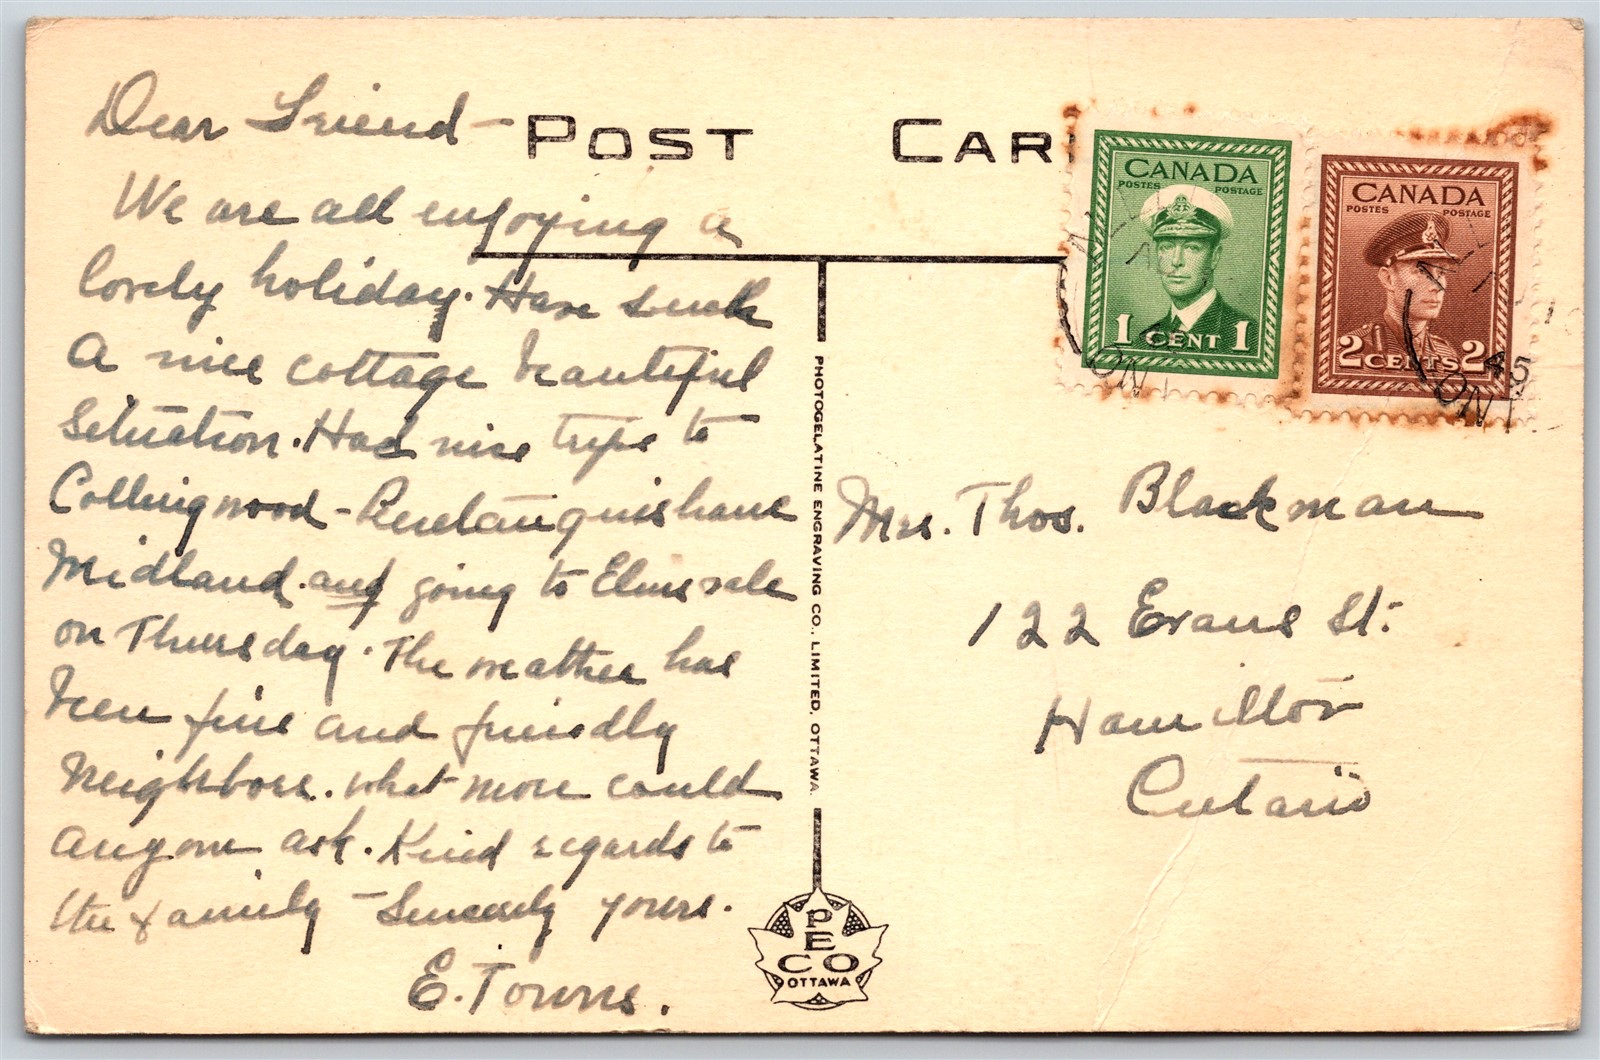 Dear Friend -
We are all enjoying a
lovely holiday. Have such
a nice cottage beautiful
situation. Had nice trips to
Collingwood - Penetanguishane
Midland. and going to Elmvale
on Thursday. The weather has
been fine and friendly
Neighbors. what more could
anyone ask. Kind regards to
the family - Sincerely yours.
E. Towns.
POST CAR
CANADA
POSTES POSTAGE
1 CENT 1
CANADA
POSTES POSTAGE
2 CENTS 2
45
ONT
ONT
Mrs. Thos. Blackman
122 Evans St.
Hamilton
Ontario
PHOTOGELATINE ENGRAVING CO., LIMITED, OTTAWA.
PECO
OTTAWA